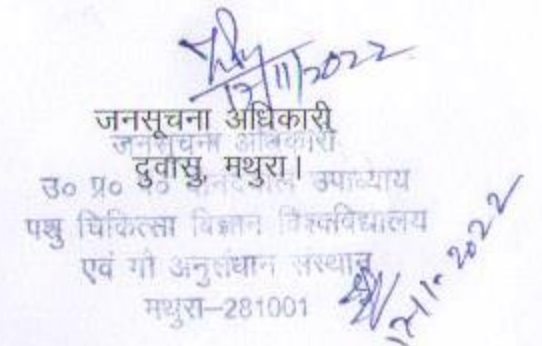 17/11/2022
जनसूचना अधिकारी
जनसूचना अधिकारी
दुवासु, मथुरा।
उ० प्र० उपाध्याय
पशु चिकित्सा विज्ञान विश्वविद्यालय
एवं गौ अनुसंधान संस्थान
मथुरा-281001
17-11-2022